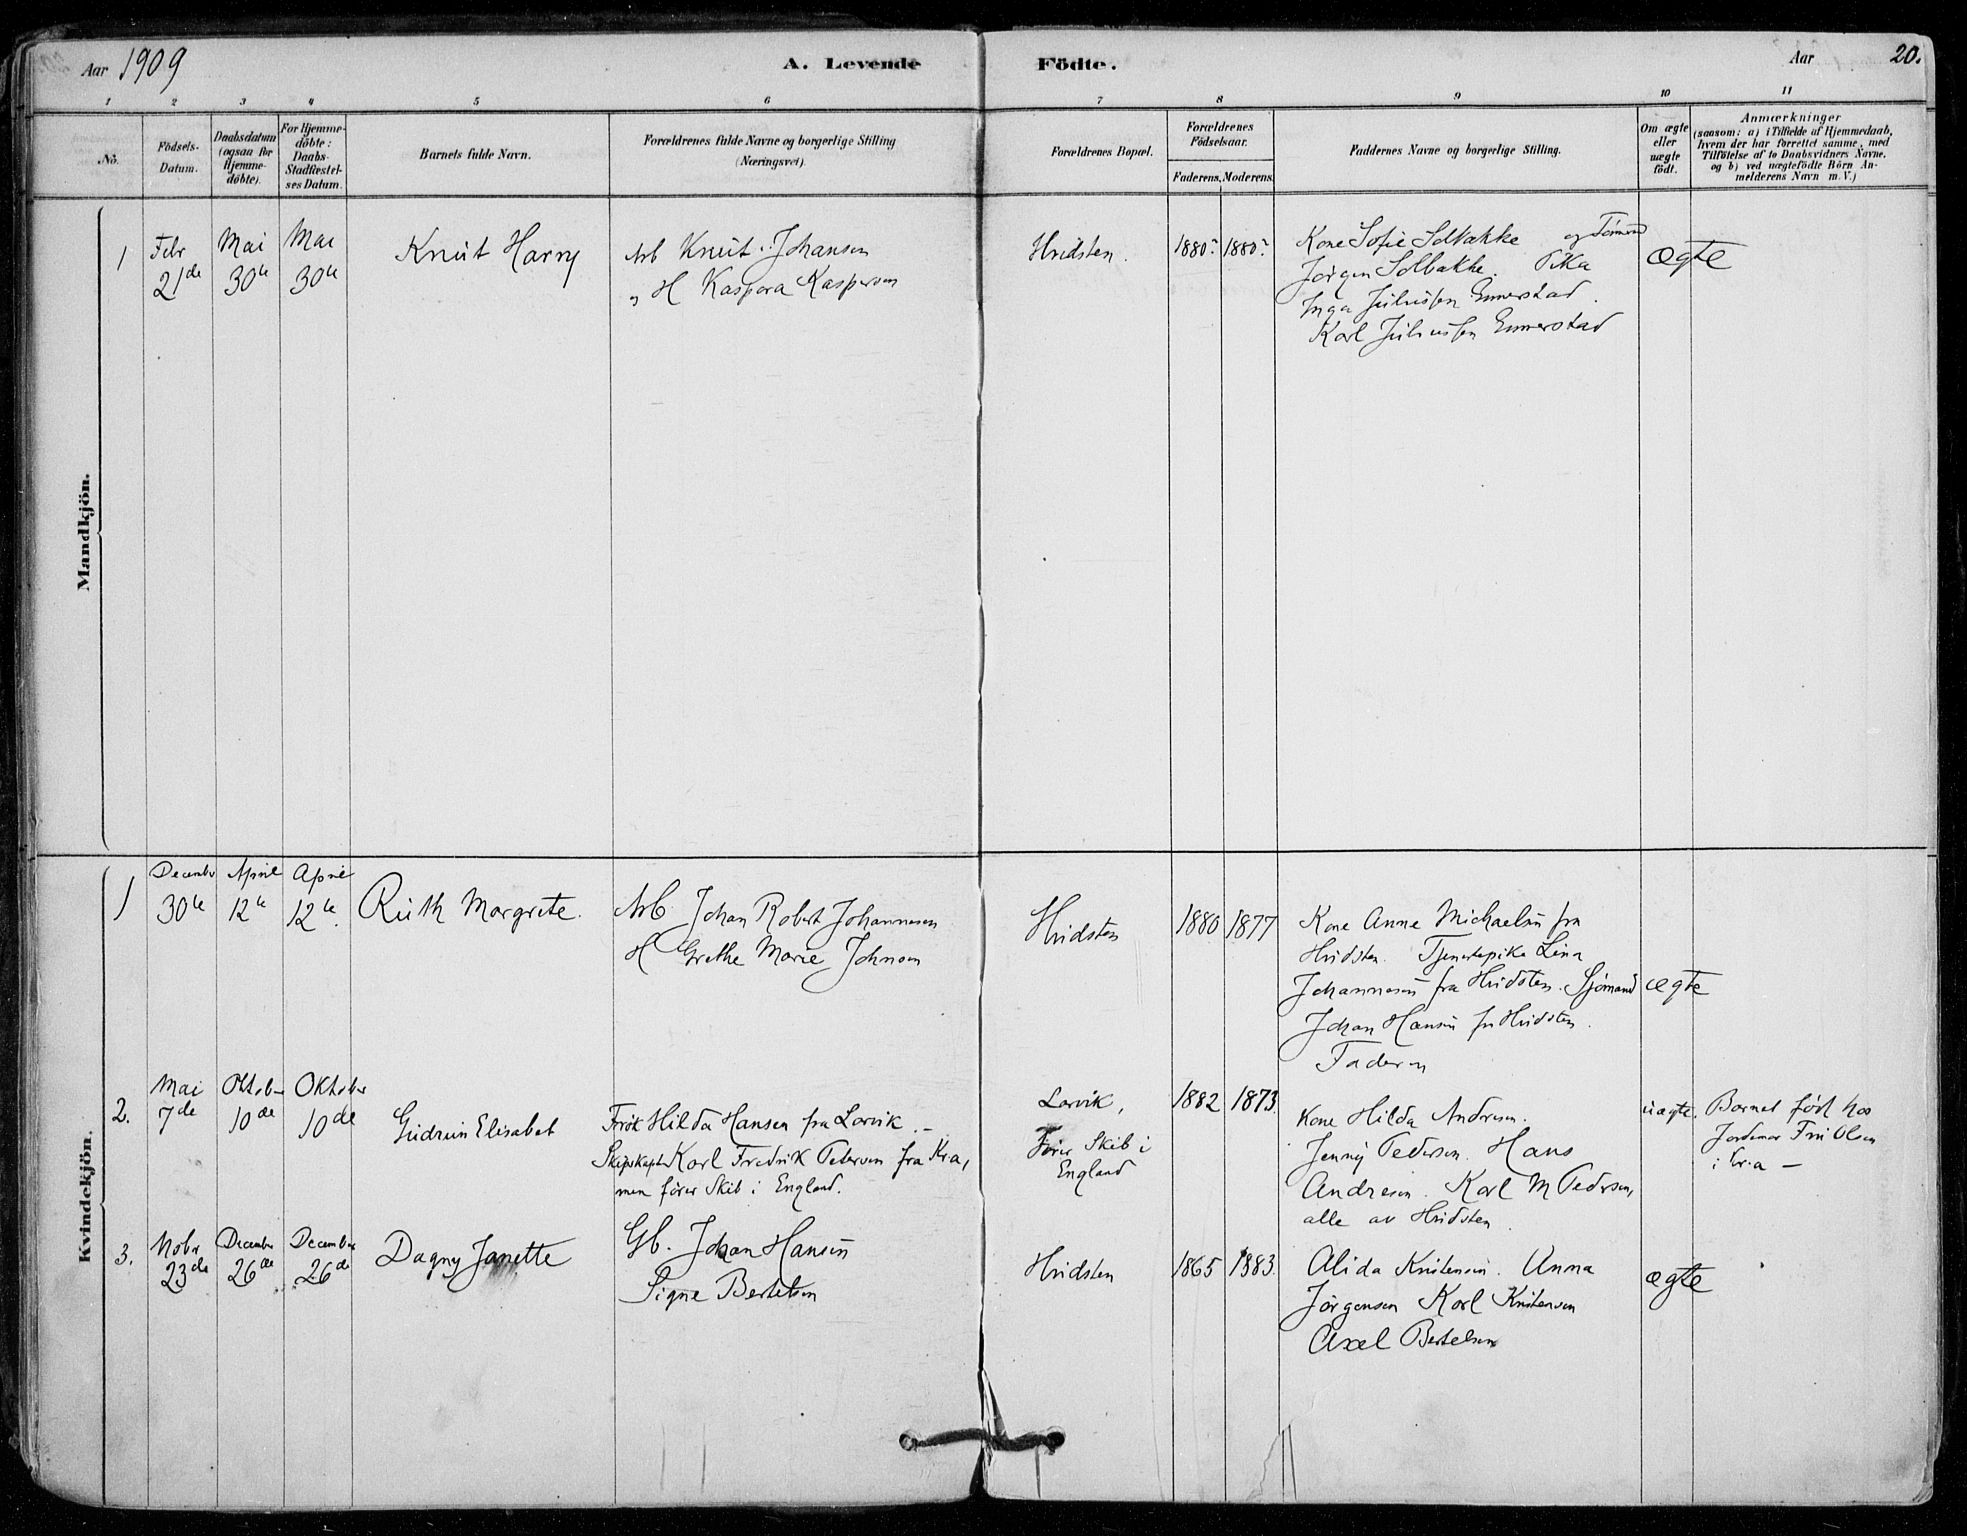 Aar 1909
A. Levende Födte.
Aar
20.
1 2 3 4 5 6 7 8 9 10 11
No.
Födsels-Datum.
Daabsdatum (ogsaa for Hjemme-döbte).
For Hjemme-döbte: Daabs-Stadfæstel-ses Datum.
Barnets fulde Navn.
Forældrenes fulde Navne og borgerlige Stilling (Næringsvei).
Forældrenes Bopæl.
Forældrenes Födselsaar.
Faderens. Moderens.
Faddernes Navne og borgerlige Stilling.
Om ægte eller uægte födt.
Anmærkninger
(saasom: a) i Tilfælde af Hjemmedaab,
hvem der har forrettet samme, med
Tilföielse af to Daabsvidners Navne.
og b) ved uægtefödte Börn An-
melderens Navn m. V.)
Mandkjön.
1
Febr 21de
Mai 30te
Mai 30te
Knut Harry
Arb Knut Johansen
og H Kaspara Kaspersen
Hvidsten.
1880? 1880?
Kone Sofie Solbakke og Tømmd
Jørgen Solbakke. Pika
Inga Juliussen Emmerstad.
Karl Juliussen Emmerstad
ægte
Kvindekjön.
1
December 30te
April 12te
April 12te.
Ruth Margrete.
Arb. Johan Robert Johannesen
H Grethe Marie Johnsen
Hvidsten
1880 1877
Kone Anne Michaelsen fra
Hvidsten. Tjenestepike Lina
Johannesen fra Hvidsten. Sjömand
Johan Hansen fra Hvidsten.
Faderen
ægte
2.
Mai 7de
Oktober 10de
Oktober 10de
Gudrun Elisabet
Frøk Hilda Hansen fra Larvik. –
Skibskapt Karl Fredrik Petersen fra Kra,
men fører Skib i England.
Larvik,
Fører Skib i
England
1882 1873.
Kone Hilda Andresen.
Jenny Pedersen. Hans
Andresen. Karl M Pedersen,
alle av Hvidsten.
uægte.
Barnet född hos
Jordemor Fru Olsen
i Kr.a –
3.
Nobr 23de
December 26de
December 26de
Dagny Janette
Gb. Johan Hansen
Signe Bertelsen
Hvidsten
1865 1883.
Alida Kristensen. Anna
Jørgensen Karl Kristensen
Axel Bertelsen
ægte